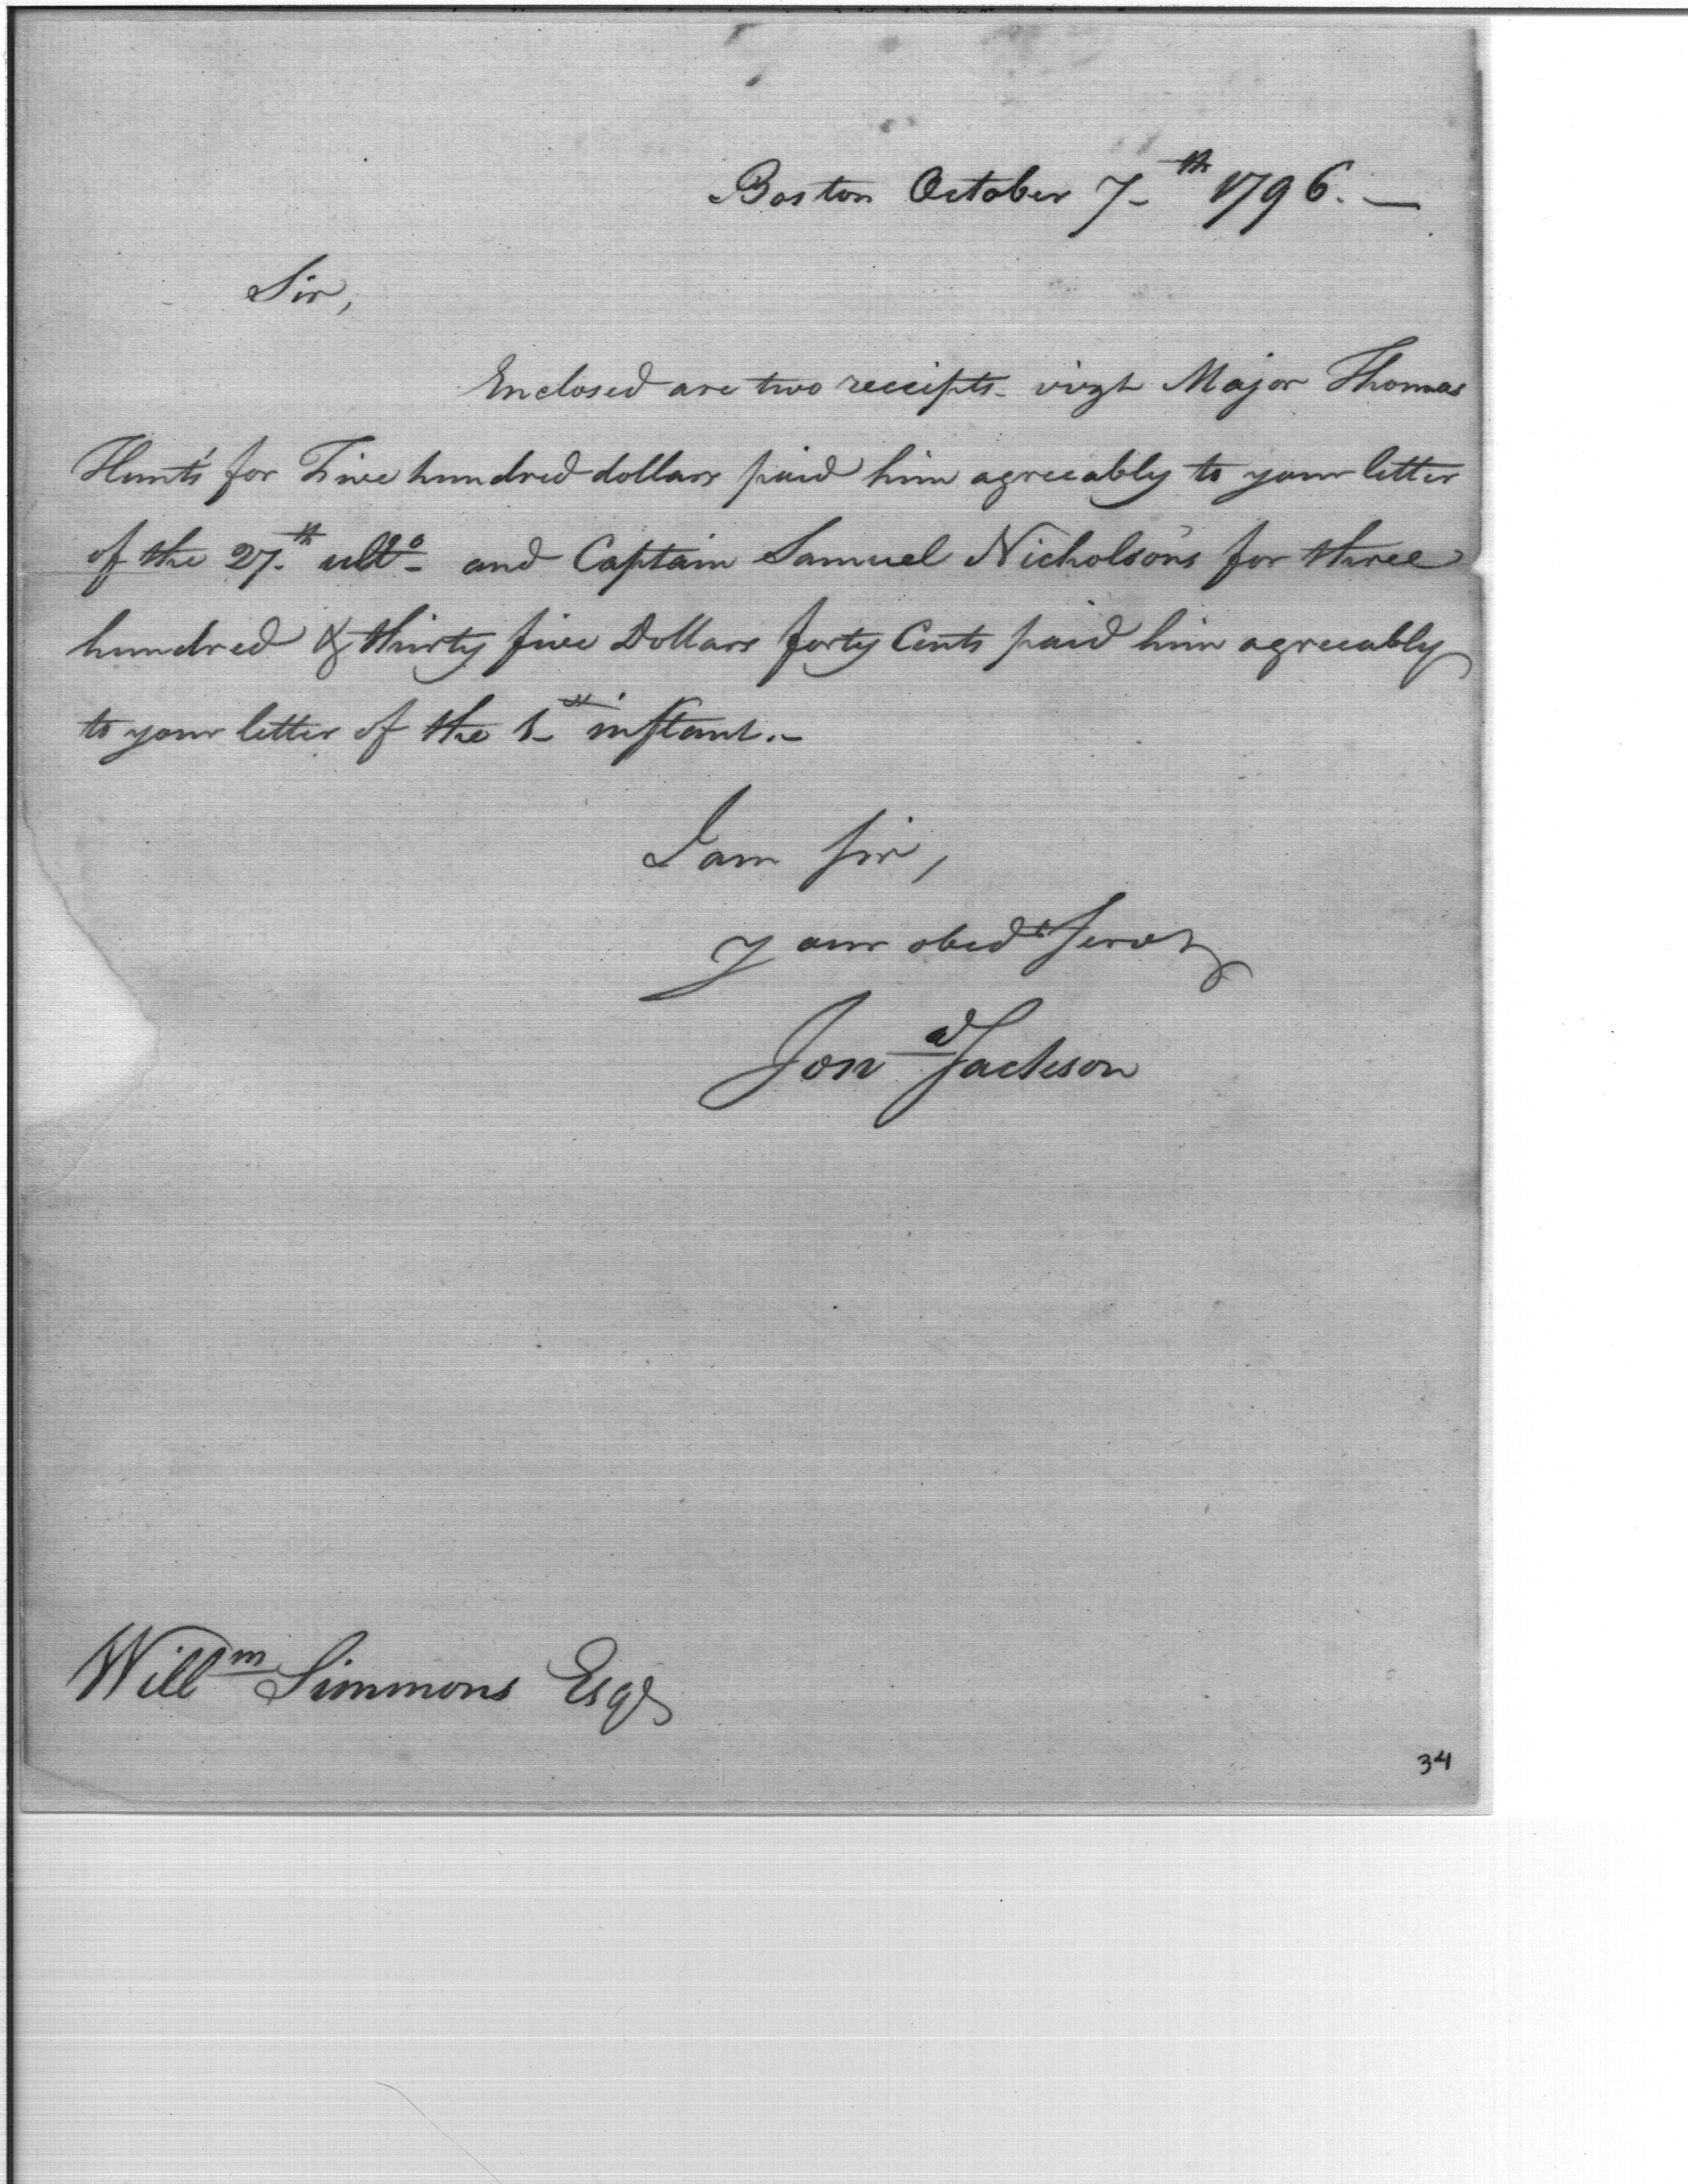 Boston October 7th 1796.—
Sir,
Enclosed are two receipts- vizt Major Thomas
Hunt's for Five hundred dollars paid him agreeably to your letter
of the 27th ulto- and Captain Samuel Nicholson's for three
hundred & thirty five Dollars forty Cents paid him agreeably
to your letter of the 1st instant.-
I am Sir,
your obedt Servt
Jona Jackson
Willm Simmons Esqr
34